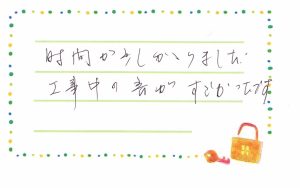 時間が少しかかりました
工事中の音がすごかったです